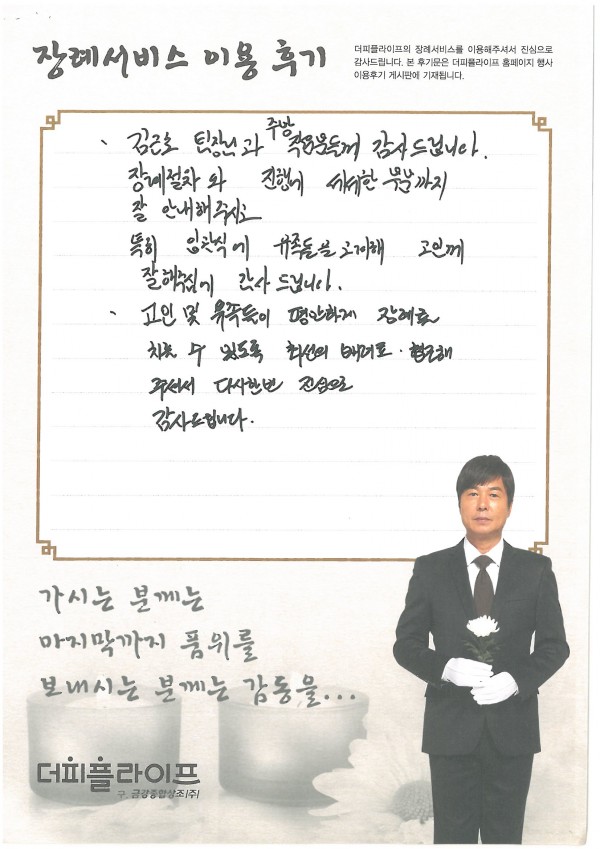 장례서비스 이용 후기
더피플라이프의 장례서비스를 이용해주셔서 진심으로
감사드립니다. 본 후기문은 더피플라이프 홈페이지 행사
이용후기 게시판에 기재됩니다.
주방
김근호 팀장님과 직원분들께 감사드립니다.
장례절차와 진행에 세세한 부분까지
잘 안내해주시고
특히 입관식에 유족들을 고인께
잘해주심에 감사드립니다.
고인 및 유족들이 평안하게 장례를
치룰 수 있도록 최선의 배려로
주셔서 다시한번 진심으로
감사드립니다.
가시는 분께는
마지막까지 품위를
보내시는 분께는 감동을...
더피플라이프
구. 금강종합상조(주)